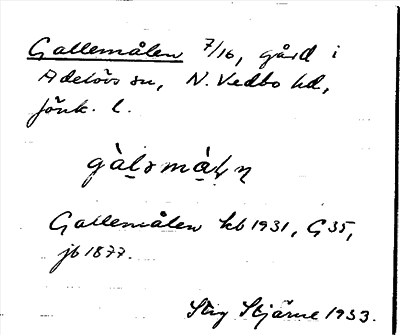 Gallemålen 7/16, gård i
Adelövs sn, N. Vedbo hd,
Jönk. l.
Gallemålen kb 1931, G35,
jb 1877.
Stig Stjärne 1933.